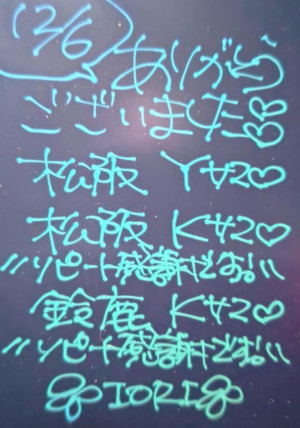 12/6 ありがとう
ございました♡♡
松阪 Yサン♡
松阪 Kサン♡
\\リピート感謝です。//
鈴鹿 Kサン♡
\\リピート感謝です。//
IORI